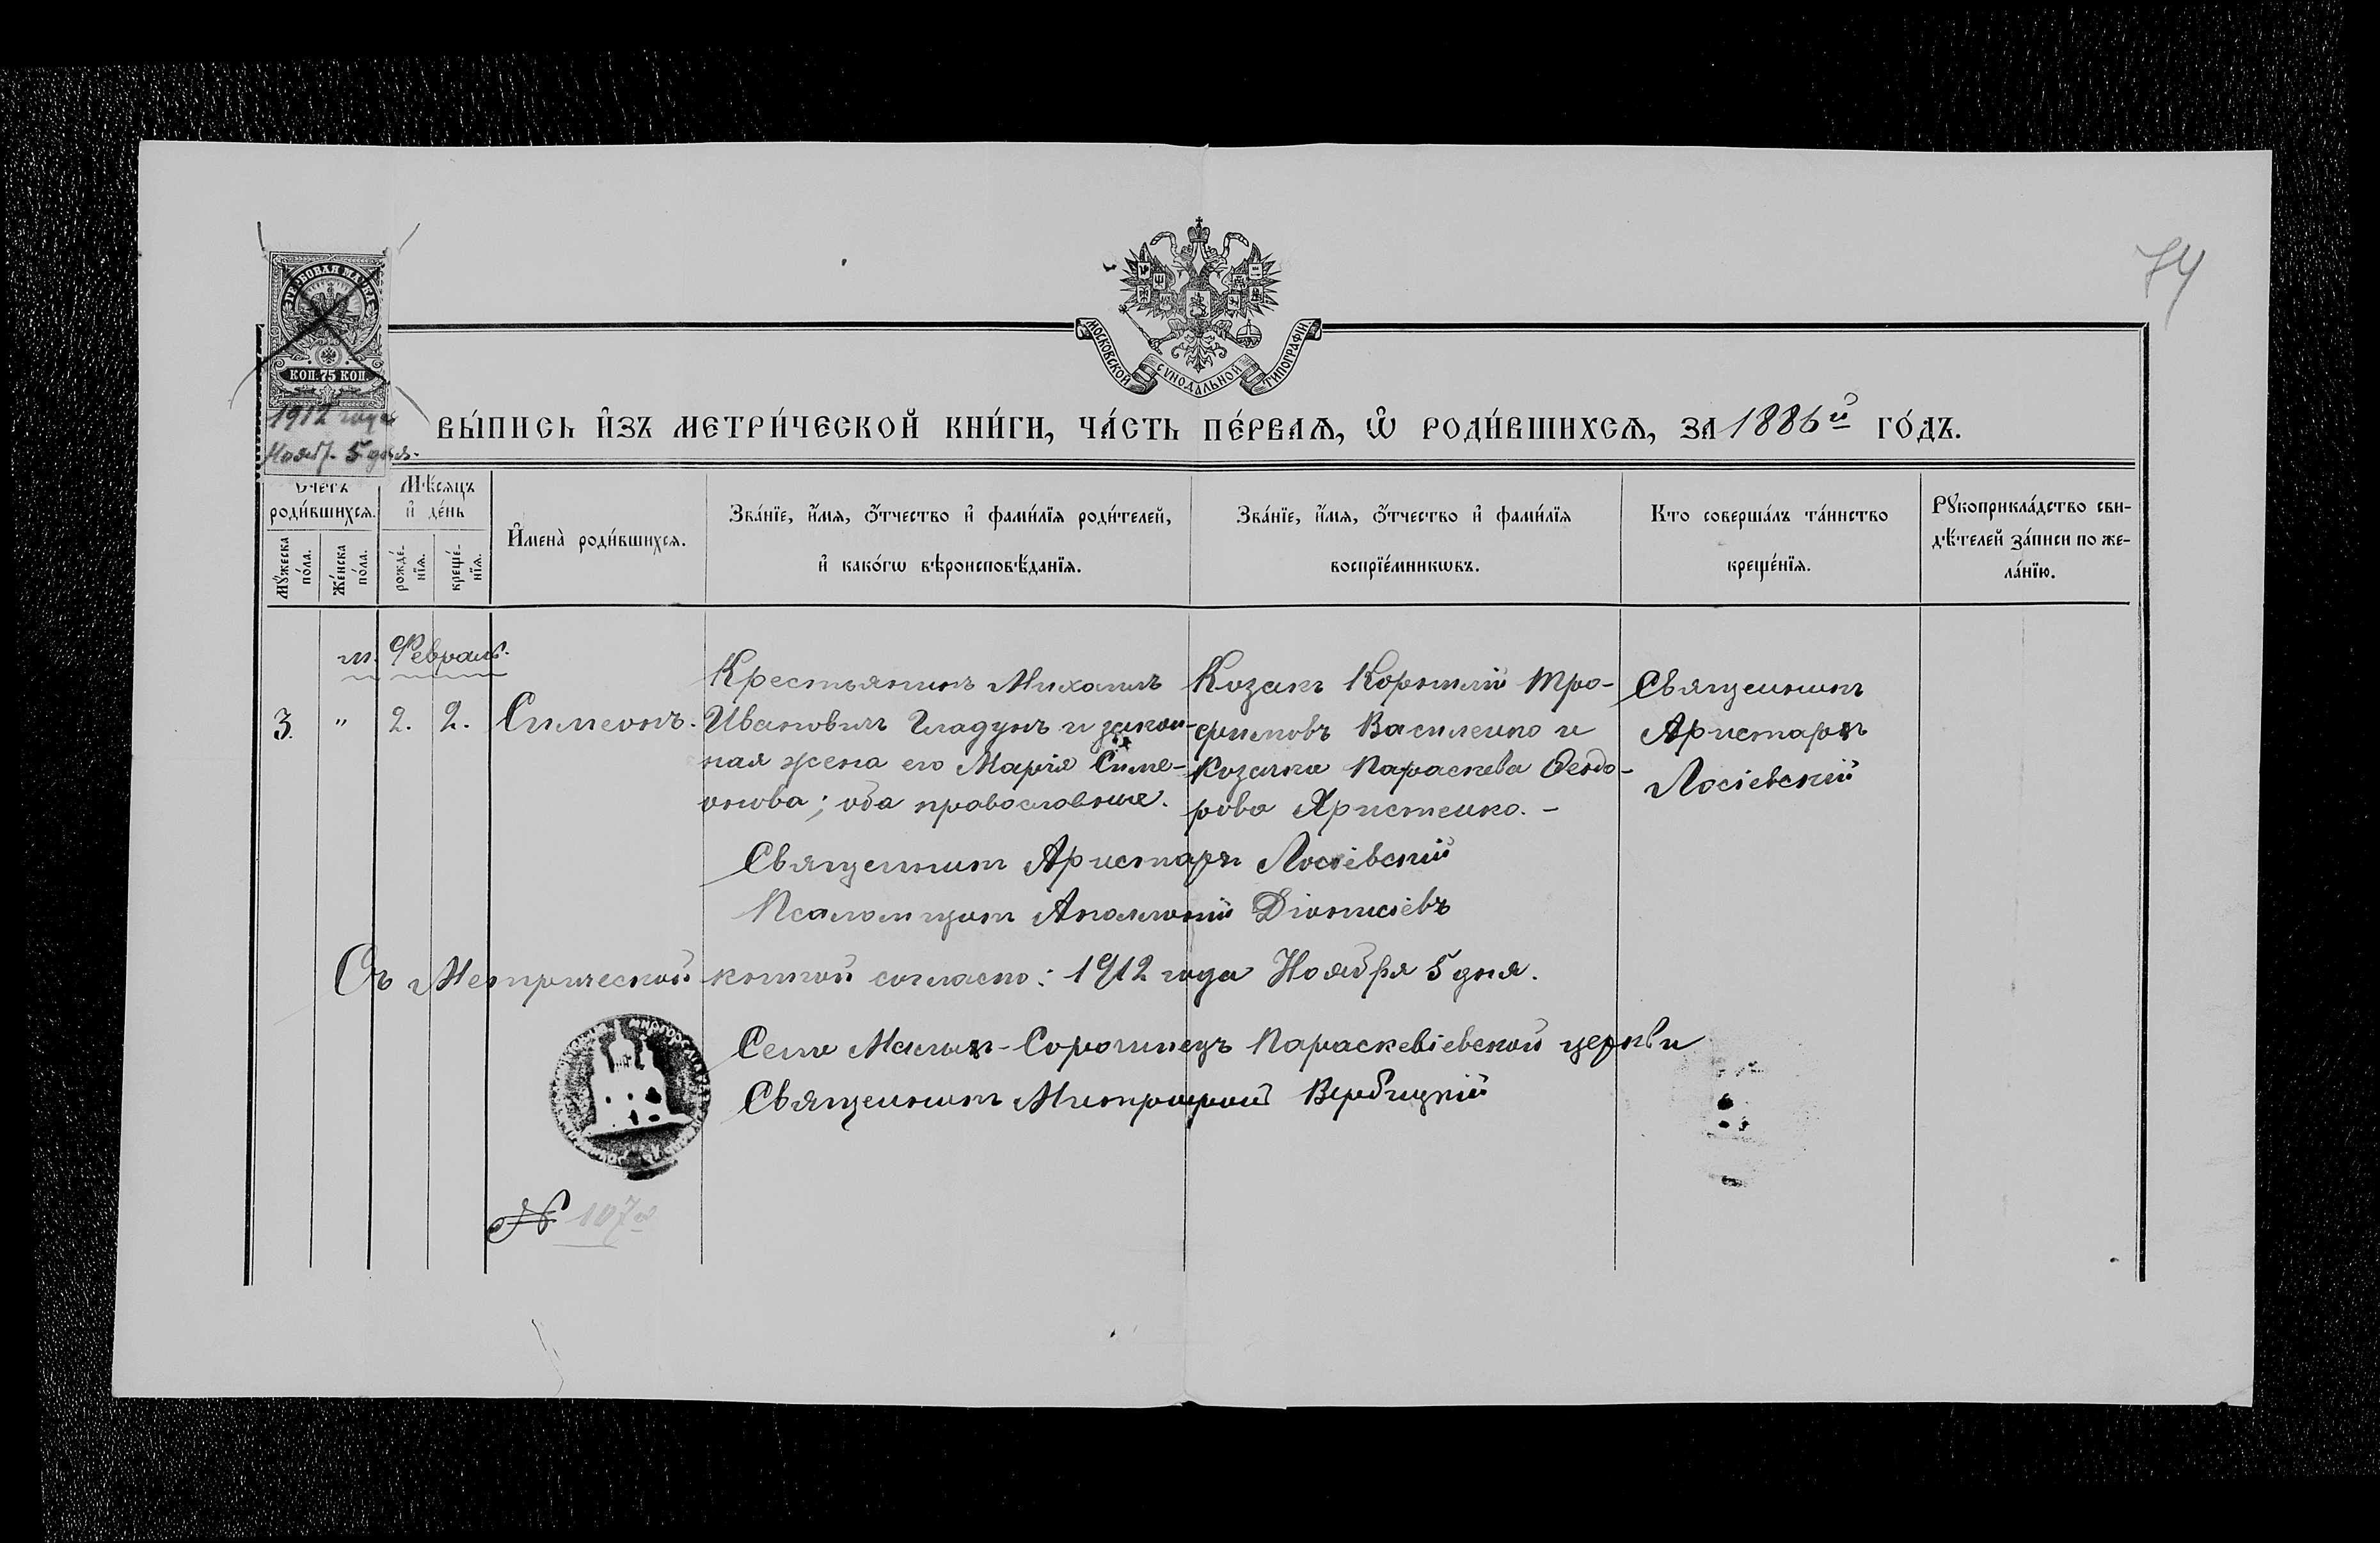 74
ГЕРБОВАЯ МАРКА
КОП. 75 КОП.
1912 года
Нояб. 5 дня.
МОСКОВСКОЙ СѴНОДАЛЬНОЙ ТИПОГРАФІИ.
ВЫ́ПИСЬ И҆ЗЪ МЕТРИ́ЧЕСКОЙ КНИ́ГИ, ЧА́СТЬ ПЕ́РВАѦ, Ѡ҆ РОДИ́ВШИХСѦ, ЗА 1886й ГО́ДЪ.
Счетъ роди́вшихсѧ.
Мѣ́сѧцъ и҆ де́нь
Мꙋ́жеска по́ла.
Же́нска по́ла.
рожде́нїѧ.
креще́нїѧ.
И҆мена̀ роди́вшихсѧ.
Зва́нїе, и҆́мѧ, ѻ҆́тчество и҆ фами́лїѧ роди́телей,
и҆ како́гѡ вѣроисповѣ́данїѧ.
Зва́нїе, и҆́мѧ, ѻ҆́тчество и҆ фами́лїѧ
воспрїе́мникѡвъ.
Кто соверша́лъ та́инство
креще́нїѧ.
Рꙋкоприкла́дство сви-
дѣ́телей за́писи по же-
ла́нїю.
м. Февраль.
3. " 2. 2. Симеонъ.
Крестьянинъ Михаилъ
Ивановичъ Гладунъ и закон-
ная жена его Марія Симе-
онова; оба православные.
Козакъ Корнилій Тро-
фимовъ Василенко и
Козачка Параскева Оеодо-
рова Христенко. –
Священникъ
Аристархъ
Лосіевскій
Священникъ Аристархъ Лосіевскій
Псаломщикъ Аполлоній Діонисіевъ
Съ Метрической книгой согласно: 1912 года Ноября 5 дня.
Села Малыхъ-Сорочинецъ Параскевіевской церкви
Священникъ Митрофанъ Вербицкій
№ 107й